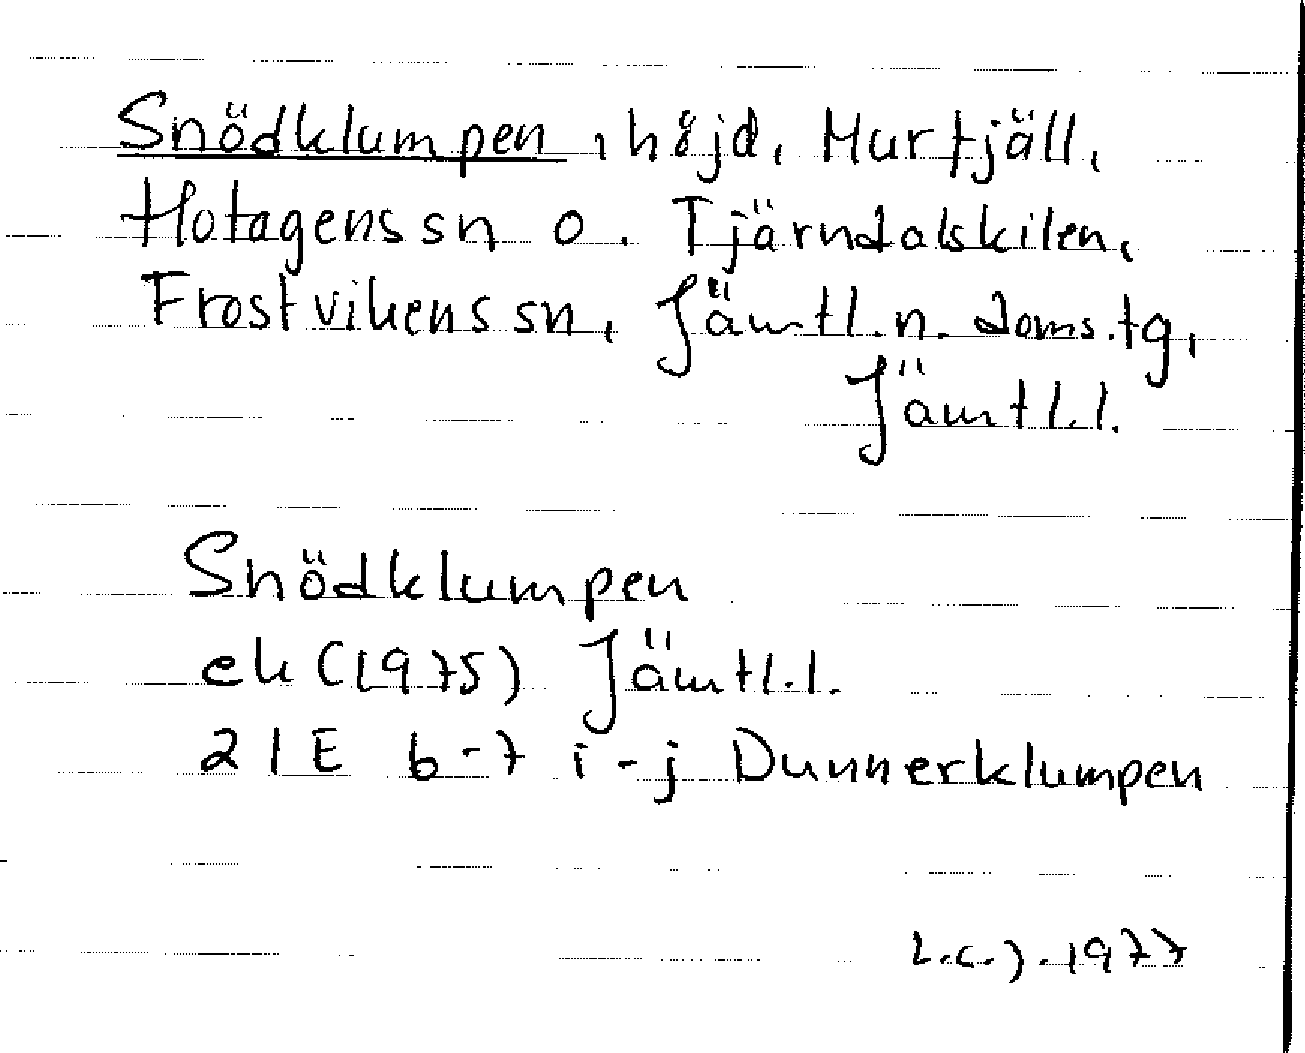 Snödklumpen, höjd, Murfjäll,
Hotagens sn o. Tjärndalskilen,
Frostvikens sn, Jämtl. n. doms. tg,
Jämtl. l.
Snödklumpen
ek (1975) Jämtl. l.
21E 6-7 i-j Dunnerklumpen
L.C.J. 1977